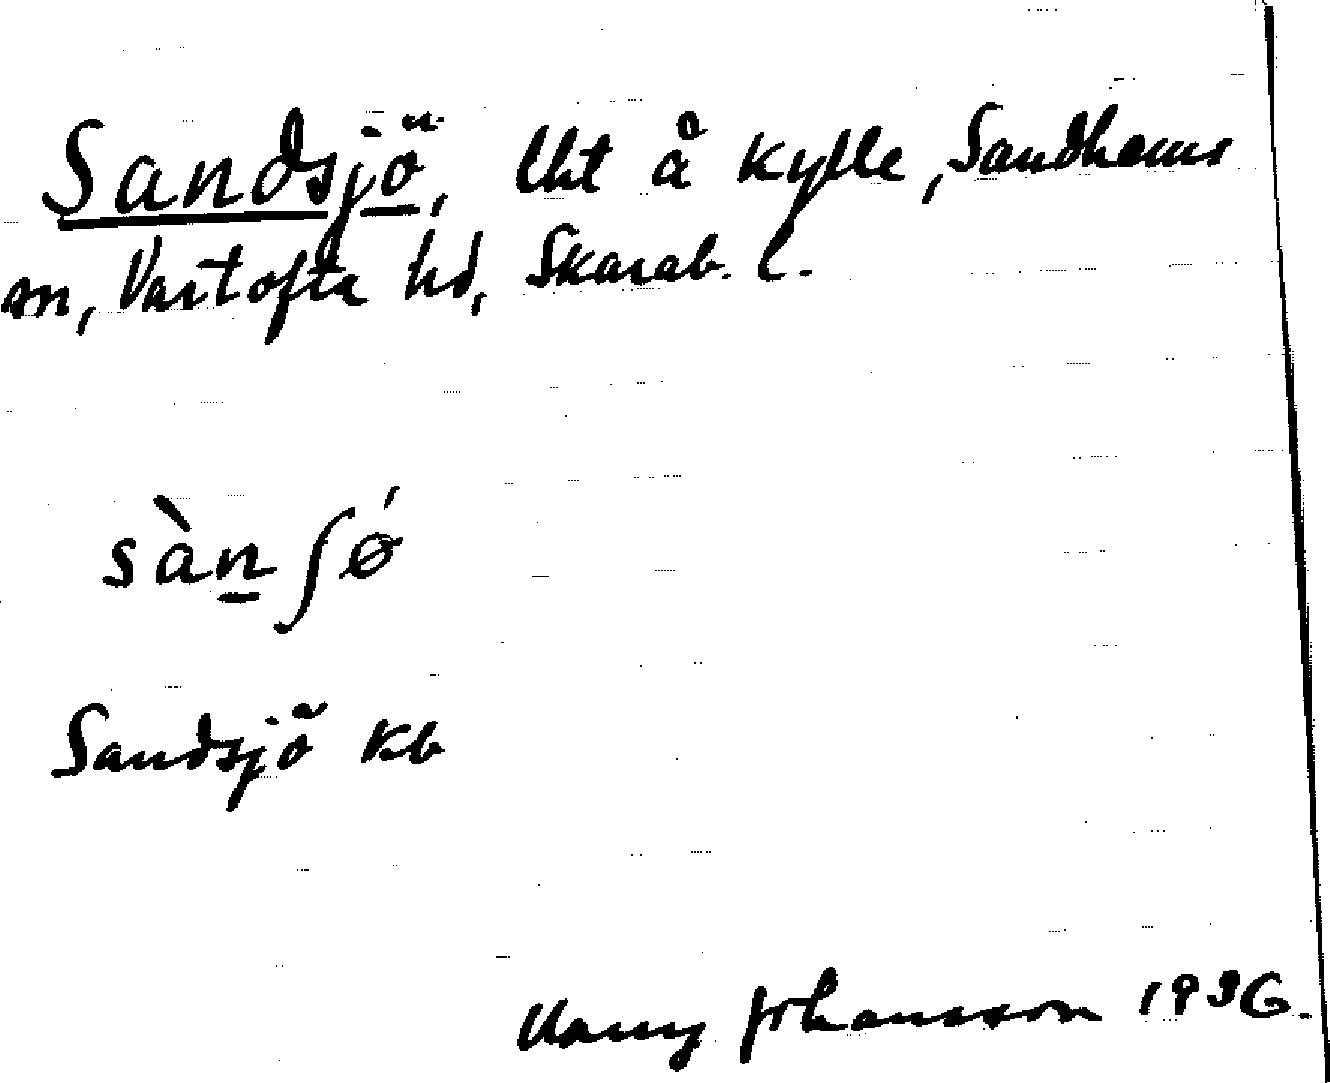 Sandsjö, lht å Kylle, Sandhems
sn, Vartofta hd, Skarab. l.
sàn ʃǿ
Sandsjö kb
Johansson 1936.